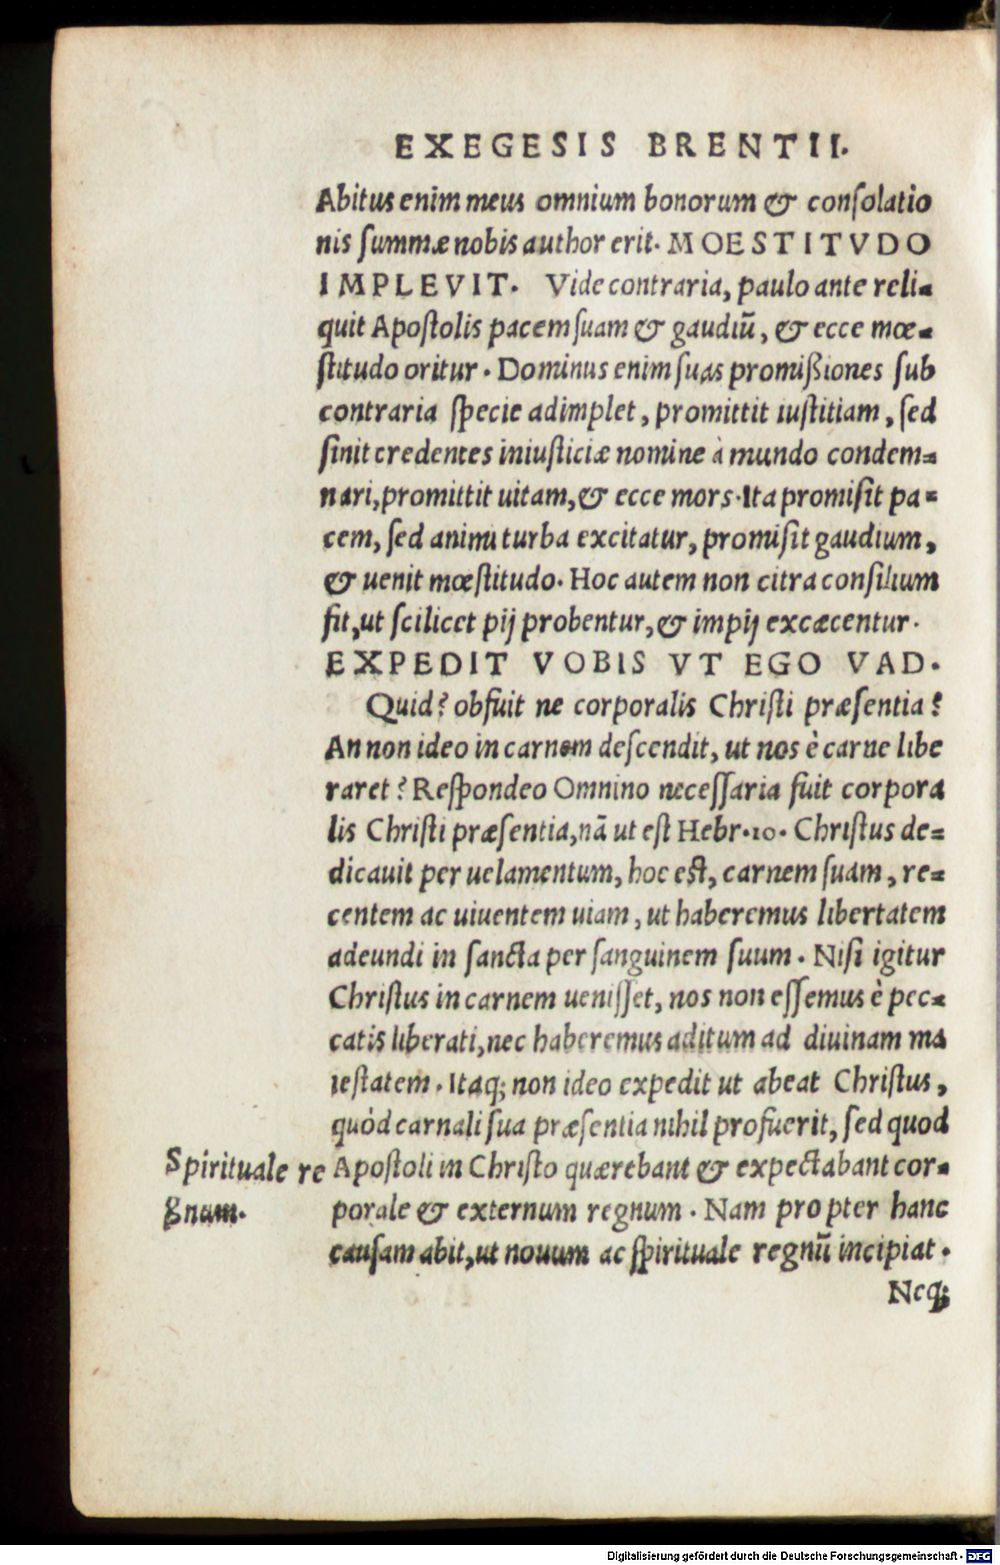 EXEGESIS BRENTII.
Abitus enim meus omnium bonorum & conſolatio
nis ſummæ nobis author erit. MOESTITVDO
IMPLEVIT. Vide contraria, paulo ante reli=
quit Apoſtolis pacem ſuam & gaudiũ, & ecce mœ=
ſtitudo oritur. Dominus enim ſuas promiſſiones ſub
contraria ſpecie adimplet, promittit iuſtitiam, ſed
ſinit credentes iniuſticiæ nomine à mundo condem=
nari, promittit uitam, & ecce mors. Ita promiſit pa=
cem, ſed animi turba excitatur, promiſit gaudium,
& uenit mœſtitudo. Hoc autem non citra conſilium
fit, ut ſcilicet pij probentur, & impij excæcentur.
EXPEDIT VOBIS VT EGO VAD.
Quid? obfuit ne corporalis Chriſti præſentia?
An non ideo in carnem deſcendit, ut nos è carne libe
raret? Reſpondeo Omnino neceſſaria fuit corpora
lis Chriſti præſentia, nã ut eſt Hebr. 10. Chriſtus de=
dicauit per uelamentum, hoc eſt, carnem ſuam, re=
centem ac uiuentem uiam, ut haberemus libertatem
adeundi in ſancta per ſanguinem ſuum. Niſi igitur
Chriſtus in carnem ueniſſet, nos non eſſemus è pec=
catis liberati, nec haberemus aditum ad diuinam ma
ieſtatem. Itaq; non ideo expedit ut abeat Chriſtus,
quòd carnali ſua præſentia nihil profuerit, ſed quod
Spirituale re
gnum.
Apoſtoli in Chriſto quærebant & expectabant cor=
porale & externum regnum. Nam pro pter hanc
cauſam abit, ut nouum ac ſpirituale regnũ incipiat.
Neq;
Digitalisierung gefördert durch die Deutsche Forschungsgemeinschaft - DFG